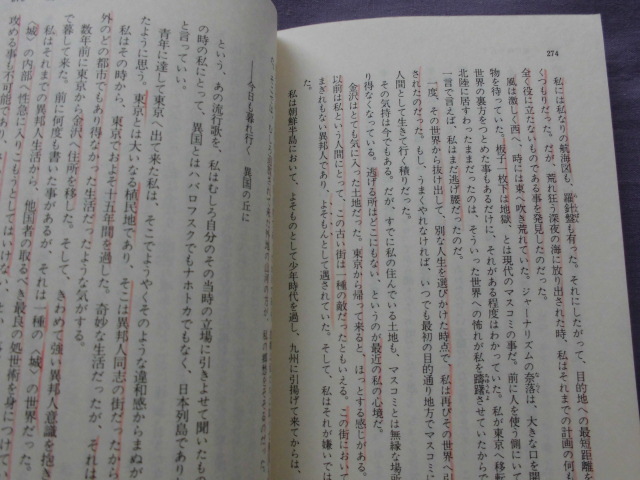 274
私には私なりの航海図も、羅針盤も有った。それにしたがって、目的地への最短距離を
くつもりだった。だが、荒れ狂う深夜の海に放り出された時、私はそれまでの計画の何も
全く役に立たないものである事を発見したのだった。
風は激しく西へ、時には東へ吹き荒れていた。ジャーナリズムの奈落は、大きな口を開
物を待っていた。板子一枚下は地獄、とは現代のマスコミの事だ。前に人を使う側にいて
世界の裏方をつとめた事もあるだけに、それがある程度はわかっていた。私が東京へ移転
北陸に居すわったままだったのは、そういった世界への怖れが私を躊躇させていたからで
一言で言えば、私はまだ逃げ腰だったのだ。
一度、その世界から抜け出して、別な人生を選びかけた時点で、私は再びその世界へ引
されたのだった。もし、うまくやれなければ、いつでも最初の目的通り地方でマスコミに
人間として生きて行く積りだった。
その気持は今でもある。だが、すでに私の住んでいる土地も、マスコミとは無縁な場所
り得なくなっている。逃げる所はどこにもない、というのが最近の私の心境だ。
金沢はとても気に入った土地だった。東京から帰って来ると、ほっとする感じがある。
以前は私という人間にとって、この古い街は一種の敵だったともいえる。この街において
まぎれもない異邦人であり、よそもんとして遇されていた。そして、私はそれが嫌いでは
私は朝鮮半島において、よそものとして少年時代を過し、九州に引揚げて来てからは、
――今日も暮れ行く　異国の丘に
という、あの流行歌を、私はむしろ自分のその当時の立場に引きよせて聞いたもの
の時の私にとって、異国とは、ハバロフスクでもナホトカでもなく、日本列島であり
と言っていい。
青年に達して東京へ出て来た私は、そこでようやくそのような違和感からまぬが
たように思う。東京とは大いなる植民地であり、そこは異邦人同志の街だったから
私はその時から、東京でおよそ十五年間を過した。奇妙な生活だったが、それは
外のどの都市でもあり得なかった生活だったような気がする。
数年前に東京から金沢へ住所を移した。そして、きわめて強い異邦人意識を抱き
で暮して来た。前に何度も書いた事があるが、それは一種の〈城〉の世界だった。
私はそれまでの異邦人生活から、他国者の取るべき最良の処世術を身につけてい
〈城〉の内部へ性急に入りこもうとしてはいけない。
攻める事も不可能であり、